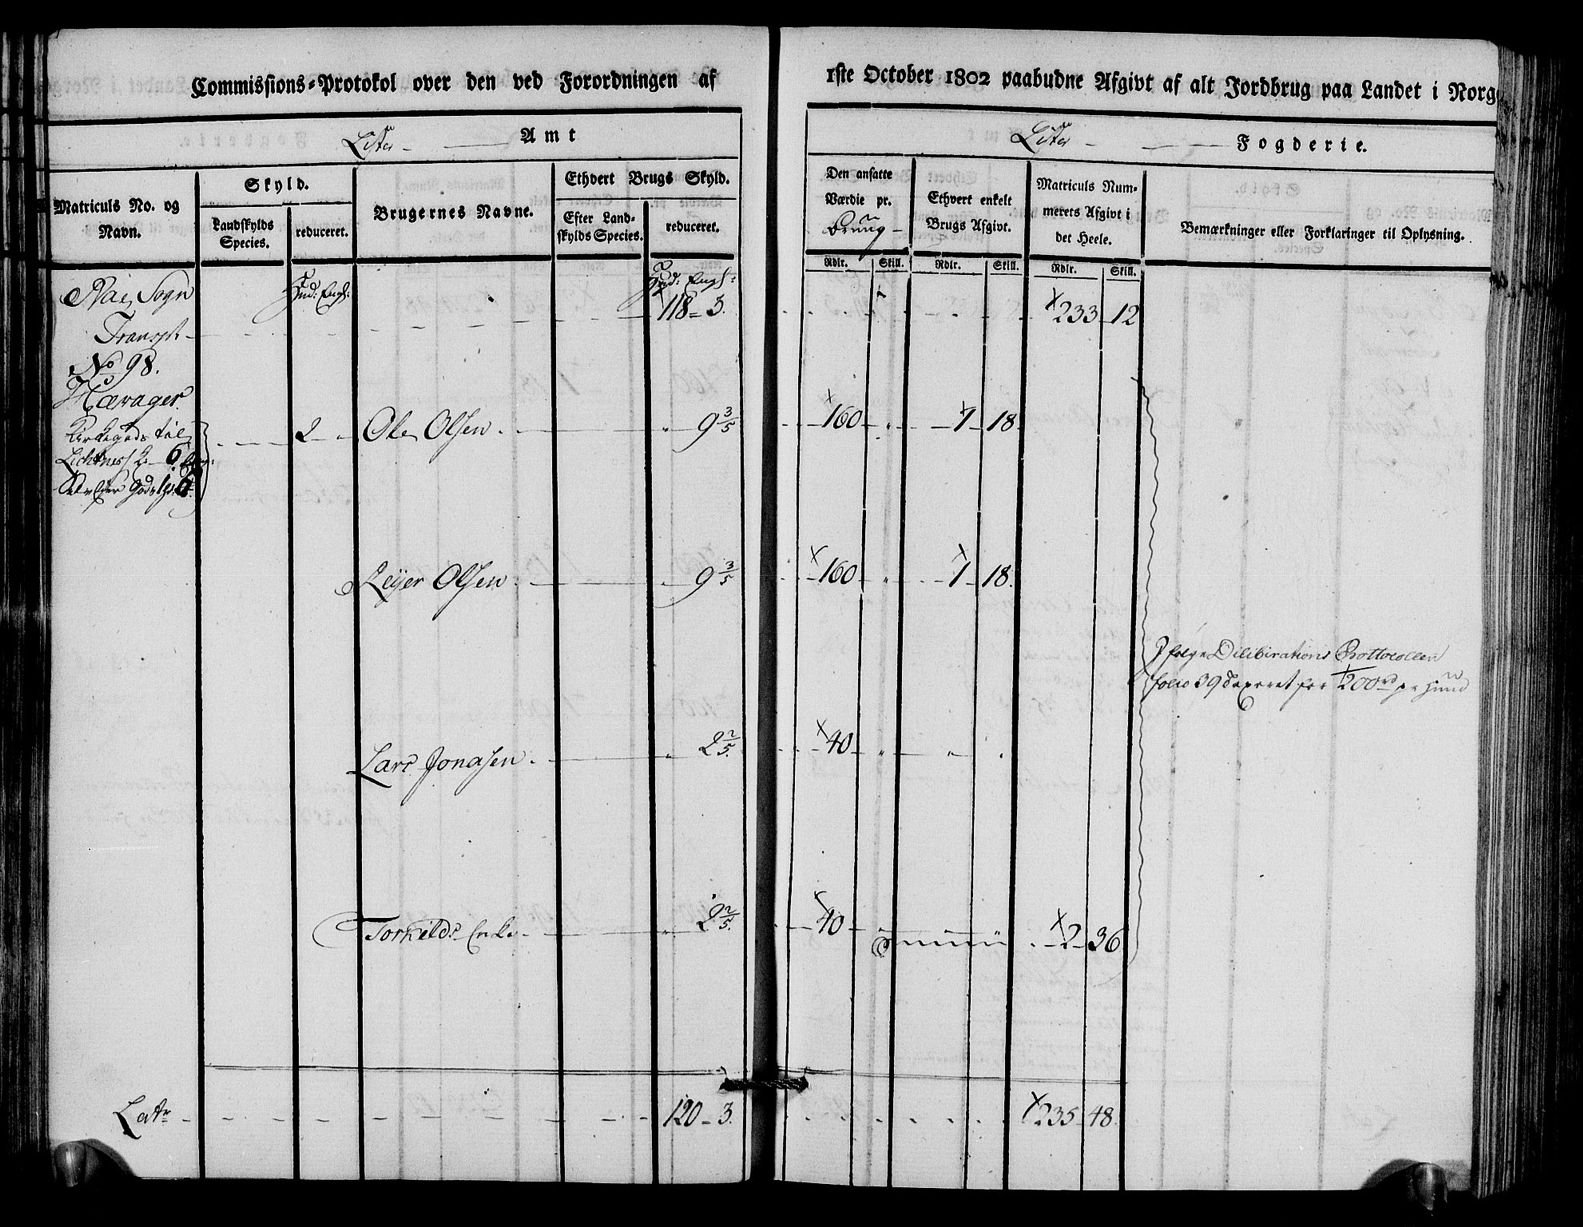 Commissions-Protokol over den ved Forordningen af
1ste October 1802 paabudne Afgivt af alt Jordbrug paa Landet i Norg
Lister Amt
Lister Fogderie.
Matriculs No. og Navn.
Skyld.
Landskylds Species.
reduceret.
Brugernes Navne.
Ethvert Brugs Skyld.
Efter Landskylds Species.
reduceret.
Den ansatte Værdie pr. Bruug
Ethvert enkelt Brugs Afgivt.
Matriculs Nummerets Afgivt i det Heele.
Bemærkninger eller Forklaringer til Oplysning.
Rdlr. Skill. Rdlr. Skill. Rdlr. Skill.
Hud: Engl: Hud: Engl:
Sogn
Transpt 118 3. 233 12
No 98.
Hævager
Kirkegods til 2 Ole Olsen 9 3/5 160 1 18
6
6
Reijer Olsen 9 3/5 160 1 18.
Ifølge Dilibirations Prottocollen
folio 39 Taxeret for 200 rd pr Huud
Lars Jonasen 2 2/5. 40
Torkilds Enke 2 2/5. 40 2 36
Latr 120 3. 235 48.